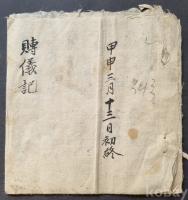 甲申三月十三日初終
賻儀記
KOBAY